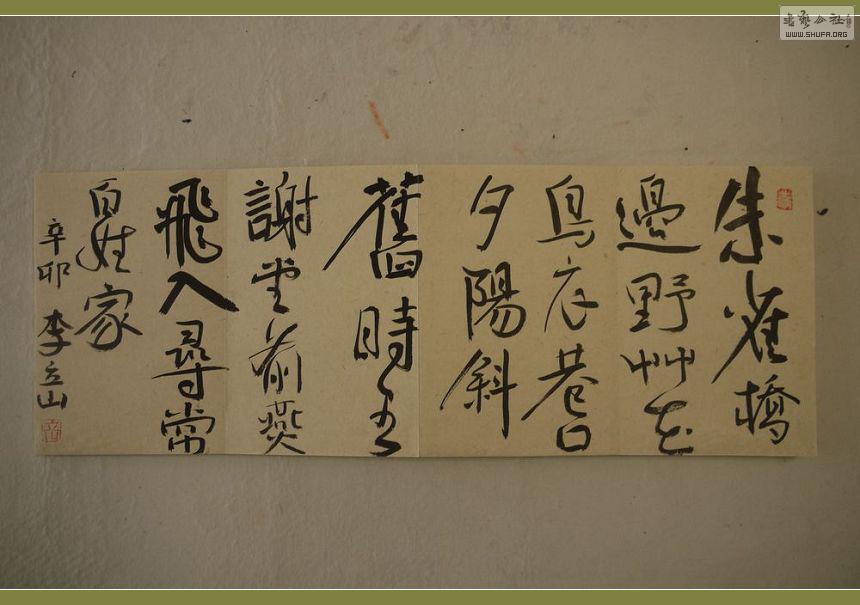 朱雀橋
邊野艸花
烏衣巷口
夕陽斜
舊時王
謝堂前燕
飛入尋常
百姓家
辛卯 李立山
書藝公社
WWW.SHUFA.ORG